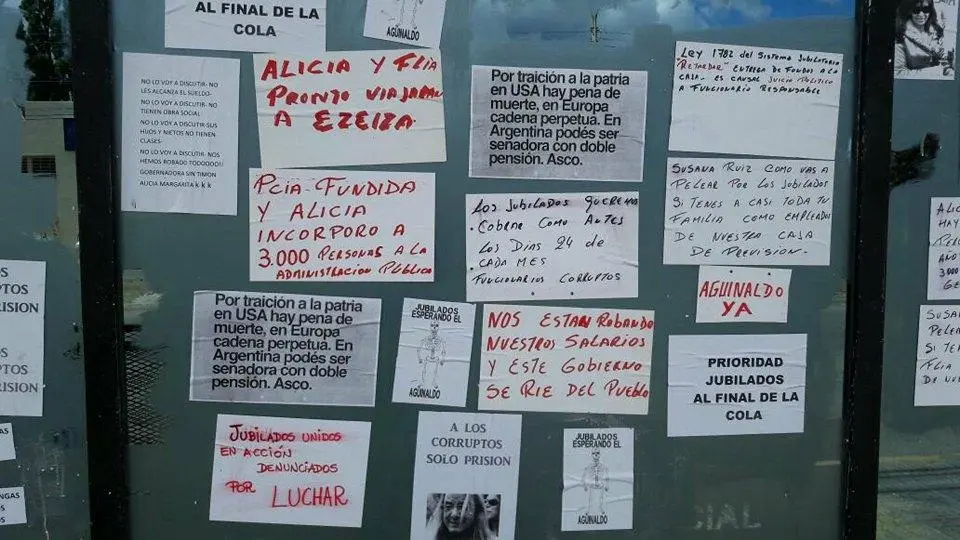 AL FINAL DE LA
COLA
AGUINALDO
NO LO VOY A DISCUTIR- NO
LES ALCANZA EL SUELDO-
NO LO VOY A DISCUTIR- NO
TIENEN OBRA SOCIAL
NO LO VOY A DISCUTIR-SUS
HIJOS Y NIETOS NO TIENEN
CLASES-
NO LO VOY A DISCUTIR- NOS
HEMOS ROBADO TOOOOOO!!
GOBERNADORA SIN TIMON
ALICIA MARGARITA k k k
ALICIA Y FLIA
PRONTO VIAJARAN
A EZEIZA
Por traición a la patria
en USA hay pena de
muerte, en Europa
cadena perpetua. En
Argentina podés ser
senadora con doble
pensión. Asco.
LEY 1782 del Sistema Jubilatorio
"RETARDAR" ENTREGA DE FONDOS A LA
CAJA - ES CAUSAL JUICIO POLITICO
A FUNCIONARIO RESPONSABLE
PCIA FUNDIDA
Y ALICIA
INCORPORO A
3.000 PERSONAS A LA
ADMINISTRACION PUBLICA
LOS JUBILADOS QUEREMOS
. COBRAR COMO ANTES
LOS DIAS 24 de
CADA MES
FUNCIONARIOS CORRUPTOS
SUSANA RUIZ COMO VAS A
PELEAR POR LOS JUBILADOS
SI TENES A CASI TODA TU
FAMILIA COMO EMPLEADOS
DE NUESTRA CAJA
DE PREVISIÓN.
AGUINALDO
YA
Por traición a la patria
en USA hay pena de
muerte, en Europa
cadena perpetua. En
Argentina podés ser
senadora con doble
pensión. Asco.
JUBILADOS
ESPERANDO EL
AGÜINALDO
NOS ESTAN Robando
NUESTROS SALARIOS
Y ESTE GOBIERNO
SE RIE DEL PUEBLO
PRIORIDAD
JUBILADOS
AL FINAL DE LA
COLA
JUBILADOS UNIDOS
EN ACCIÓN
DENUNCIADOS
POR LUCHAR
A LOS
CORRUPTOS
SOLO PRISION
JUBILADOS
ESPERANDO EL
AGÜINALDO
PRISION
PRISION
HAY
AÑO
3.000
SUSANA
SI TE
FLIA
DE NU